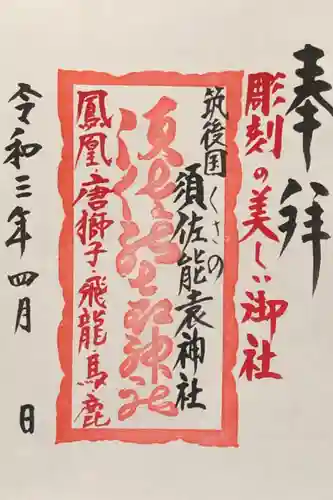 奉拝
彫刻の美しい御社
筑後国くさの
須佐能袁神社
鳳凰・唐獅子・飛龍・馬・鹿
令和三年四月　日